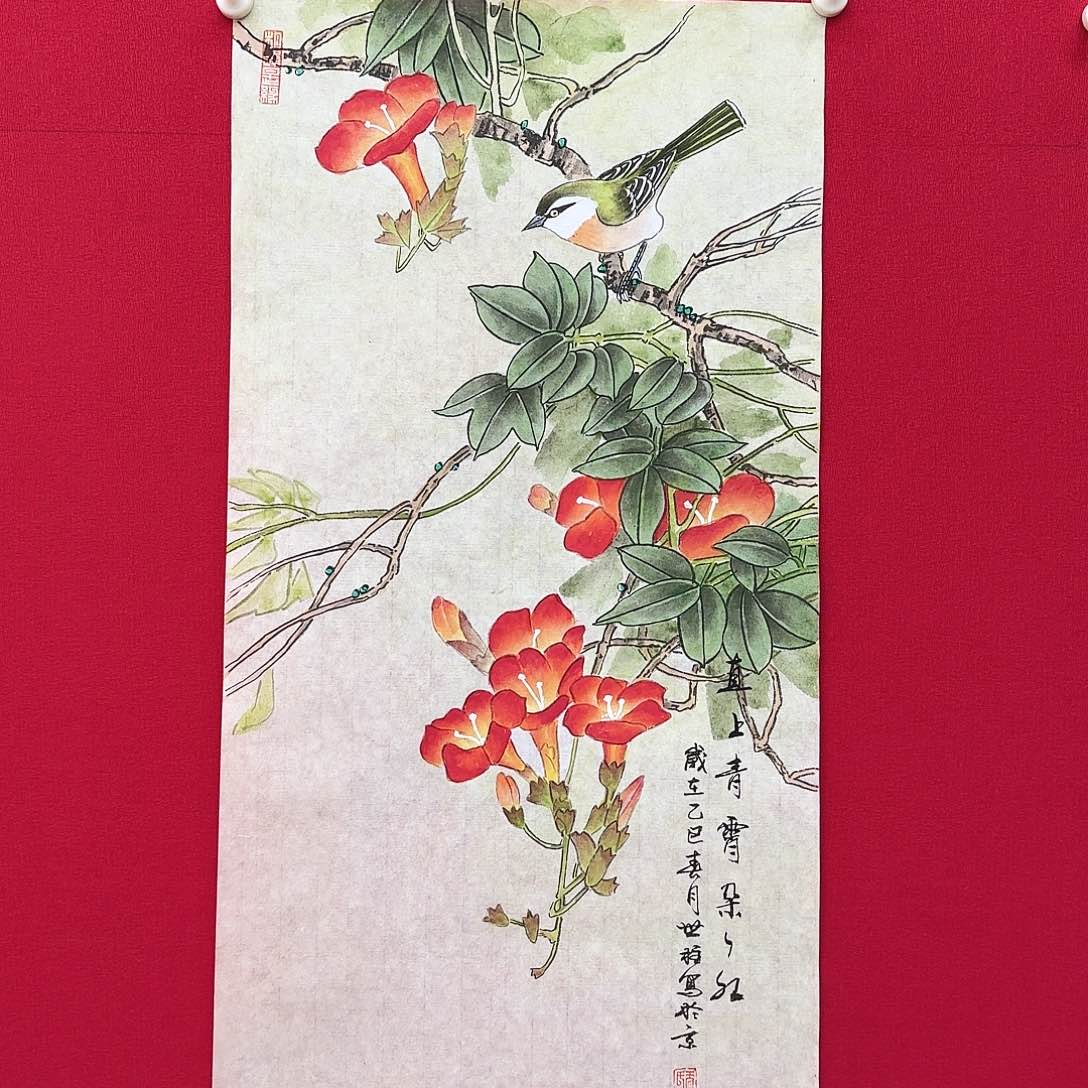 直上青霄朵々红
歲在乙巳春月世雄寫於京